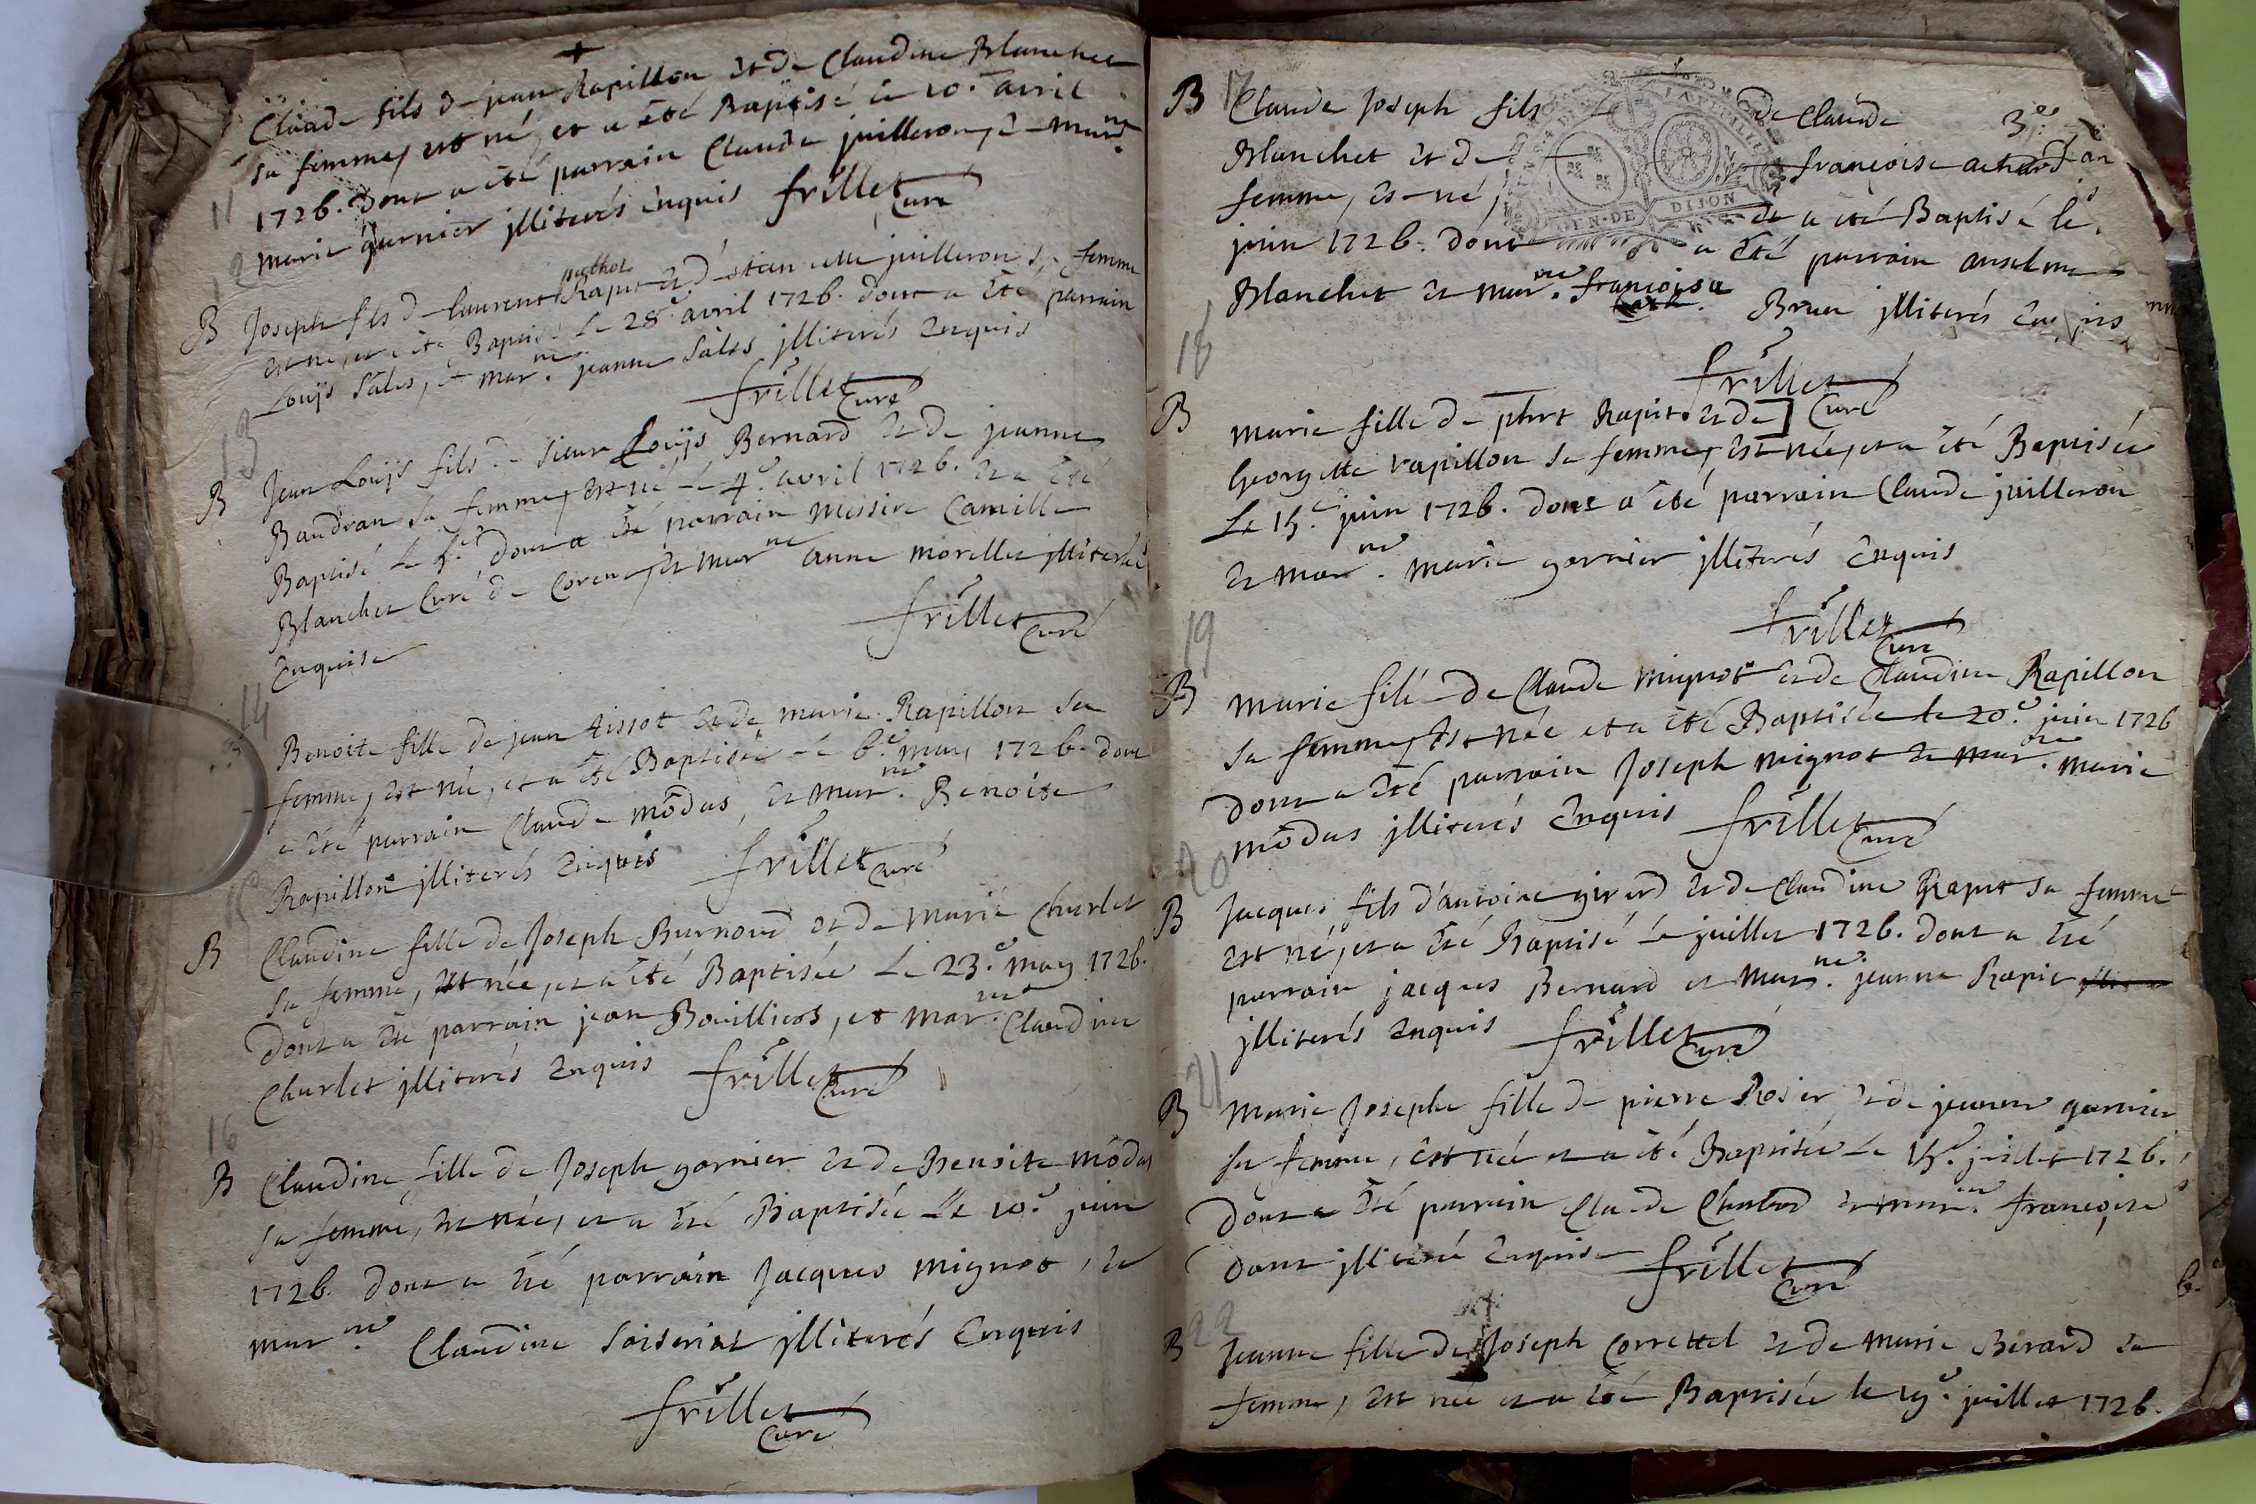 Claude fils de jean Rapillon et de Claudine Blanchet
sa femme, est né, et a été Baptisé le 10.e avril
11
1726. dont a été parrain Claude juilleron, et mar.ne
Marie garnier jlliterés Enquis frillet Curé
12
B Joseph fils de laurent Rapit et d'etiennette juilleron sa femme
est né, et a été Baptisé Le 28.e avril 1726. dont a été parrain
Louijs Sales, et mar.ne jeanne Sales jlliterés Enquis
frillet Curé
13
B Jean Louijs fils de sieur Louijs Bernard et de jeanne
Baudran sa femme, est né le 4.e avril 1726. et a été
Baptisé le dont a été parrain Messire Camille
Blanchet Curé de Coren, et mar.ne anne morellet jlliterée
Enquise
frillet Curé
14
Benoite fille de jean tissot et de marie Rapillon sa
femme, est née, et a été Baptisée le 6.e may 1726. dont
a été parrain Claude môdas, et mar.ne Benoite
Rapillon jlliterés Enquis frillet Curé
B Claudine fille de Joseph Burnoud et de Marie Charlet
sa femme, est née, et a été Baptisée Le 23.e may 1726.
dont a été parrain jean Bouilliëos, et mar.ne Claudine
Charlet jlliterés Enquis frillet Curé
16
B Claudine fille de Joseph garnier et de Benoite môdas
sa femme, est née, et a été Baptisée Le 10.e juin
1726. dont a été parrain Jacques mignot, et
mar.ne Claudine jlliterés Enquis
frillet Curé
3.e
17
B Claude Joseph fils de Claude
Blanchet et de françoise achard
femme, est né, et a été Baptisé le
GEN·DE DIJON
juin 1726. dont a été parrain anselme
Blanchet et mar.ne françoise Brun jlliterés Enquis
18
frillet Curé
B Marie fille de phrt Rapit et de
Georgette rapillon sa femme, est née, et a été Baptisée
Le 15.e juin 1726. dont a été parrain Claude juilleron
et mar.ne Marie garnier jlliterés Enquis
frillet Curé
19
B Marie fille de Claude Mignot et de Claudine Rapillon
sa femme, est née et a été Baptisée le 20.e juin 1726
dont a été parrain Joseph Mignot et mar.ne Marie
môdas jlliterés Enquis frillet Curé
20
B Jacques fils d'antoine girard et de Claudine Rapit sa femme
est né, et a été Baptisé Le juillet 1726. dont a été
parrain jacques Bernard et Mar.ne jeanne Rapit
jlliterés Enquis frillet Curé
21
B Marie Josephe fille de pierre Rosier et de jeanne garnier
sa femme, est née et a été Baptisée Le 15.e juillet 1726.
dont a été parrain Claude Chabod et mar.ne françoise
dont jlliteré Enquise frillet Curé
22
B Jeanne fille de Joseph Correttel et de Marie Berard sa
femme, est née et a été Baptisée le 19.e juillet 1726.